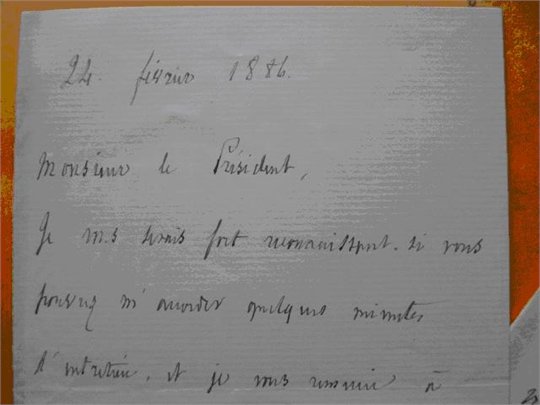 24. février 1886.
Monsieur le Président,
Je vous serais fort reconnaissant. si vous
pouvez m'accorder quelques minutes
d'entretien, et je vous à